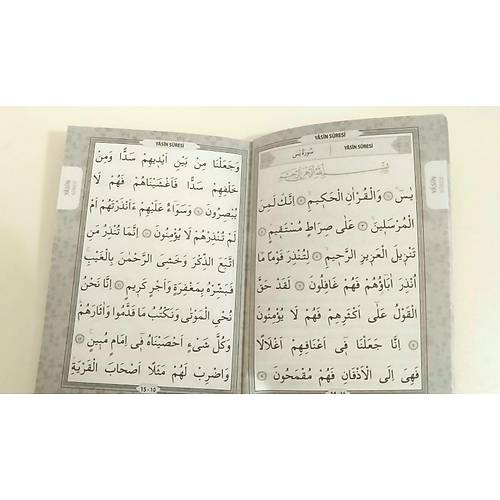 YÂSÎN SÛRESİ
سُورَةُ يٰسٓ
YÂSÎN SÛRESİ
يٰسٓ ۞ وَالْقُرْاٰنِ الْحَكٖيمِ ۞ اِنَّكَ لَمِنَ
الْمُرْسَلٖينَ ۞ عَلٰى صِرَاطٍ مُسْتَقٖيمٍ ۞
تَنْزٖيلَ الْعَزٖيزِ الرَّحٖيمِ ۞ لِتُنْذِرَ قَوْمًا مَا
اُنْذِرَ اٰبَاؤُهُمْ فَهُمْ غَافِلُونَ ۞ لَقَدْ حَقَّ
الْقَوْلُ عَلٰٓى اَكْثَرِهِمْ فَهُمْ لَا يُؤْمِنُونَ
۞ اِنَّا جَعَلْنَا فٖٓى اَعْنَاقِهِمْ اَغْلَالًا
فَهِىَ اِلَى الْاَذْقَانِ فَهُمْ مُقْمَحُونَ ۞
YÂSÎN SÛRESİ
وَجَعَلْنَا مِنْ بَيْنِ اَيْدٖيهِمْ سَدًّا وَمِنْ
خَلْفِهِمْ سَدًّا فَاَغْشَيْنَاهُمْ فَهُمْ لَا
يُبْصِرُونَ ۞ وَسَوَٓاءٌ عَلَيْهِمْ ءَاَنْذَرْتَهُمْ اَمْ
لَمْ تُنْذِرْهُمْ لَا يُؤْمِنُونَ ۞ اِنَّمَا تُنْذِرُ مَنِ
اتَّبَعَ الذِّكْرَ وَخَشِىَ الرَّحْمٰنَ بِالْغَيْبِ
فَبَشِّرْهُ بِمَغْفِرَةٍ وَاَجْرٍ كَرٖيمٍ ۞ اِنَّا نَحْنُ
نُحْيِ الْمَوْتٰى وَنَكْتُبُ مَا قَدَّمُوا وَاٰثَارَهُمْ
وَكُلَّ شَىْءٍ اَحْصَيْنَاهُ فٖٓى اِمَامٍ مُبٖينٍ ۞
وَاضْرِبْ لَهُمْ مَثَلًا اَصْحَابَ الْقَرْيَةِ
15 - 10